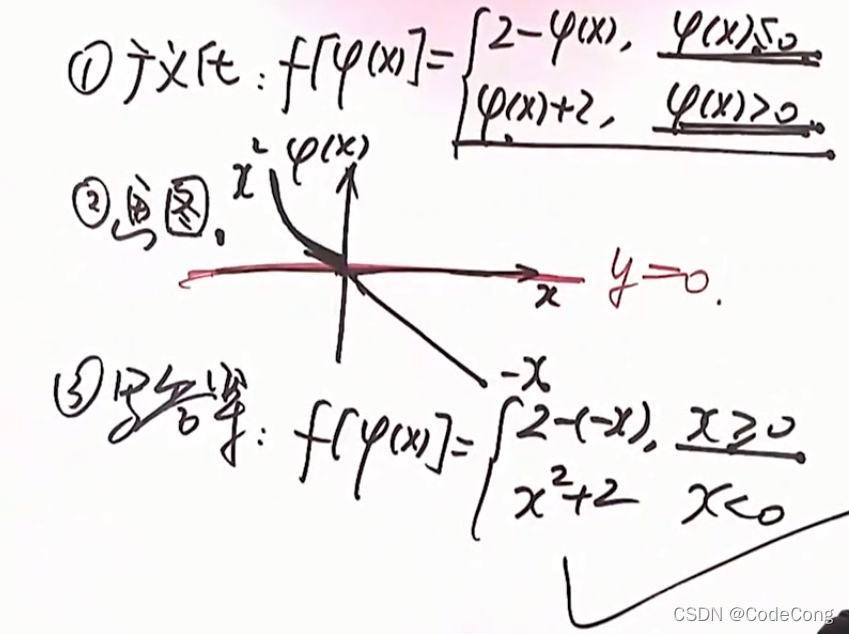 ① 广义化: f[φ(x)] = { 2-φ(x), φ(x)≤0
φ(x)+2, φ(x)>0.
② 画图. x² φ(x)
x y=0.
-x
③ 写答案: f[φ(x)] = { 2-(-x), x≥0
x²+2 x<0
CSDN @CodeCong